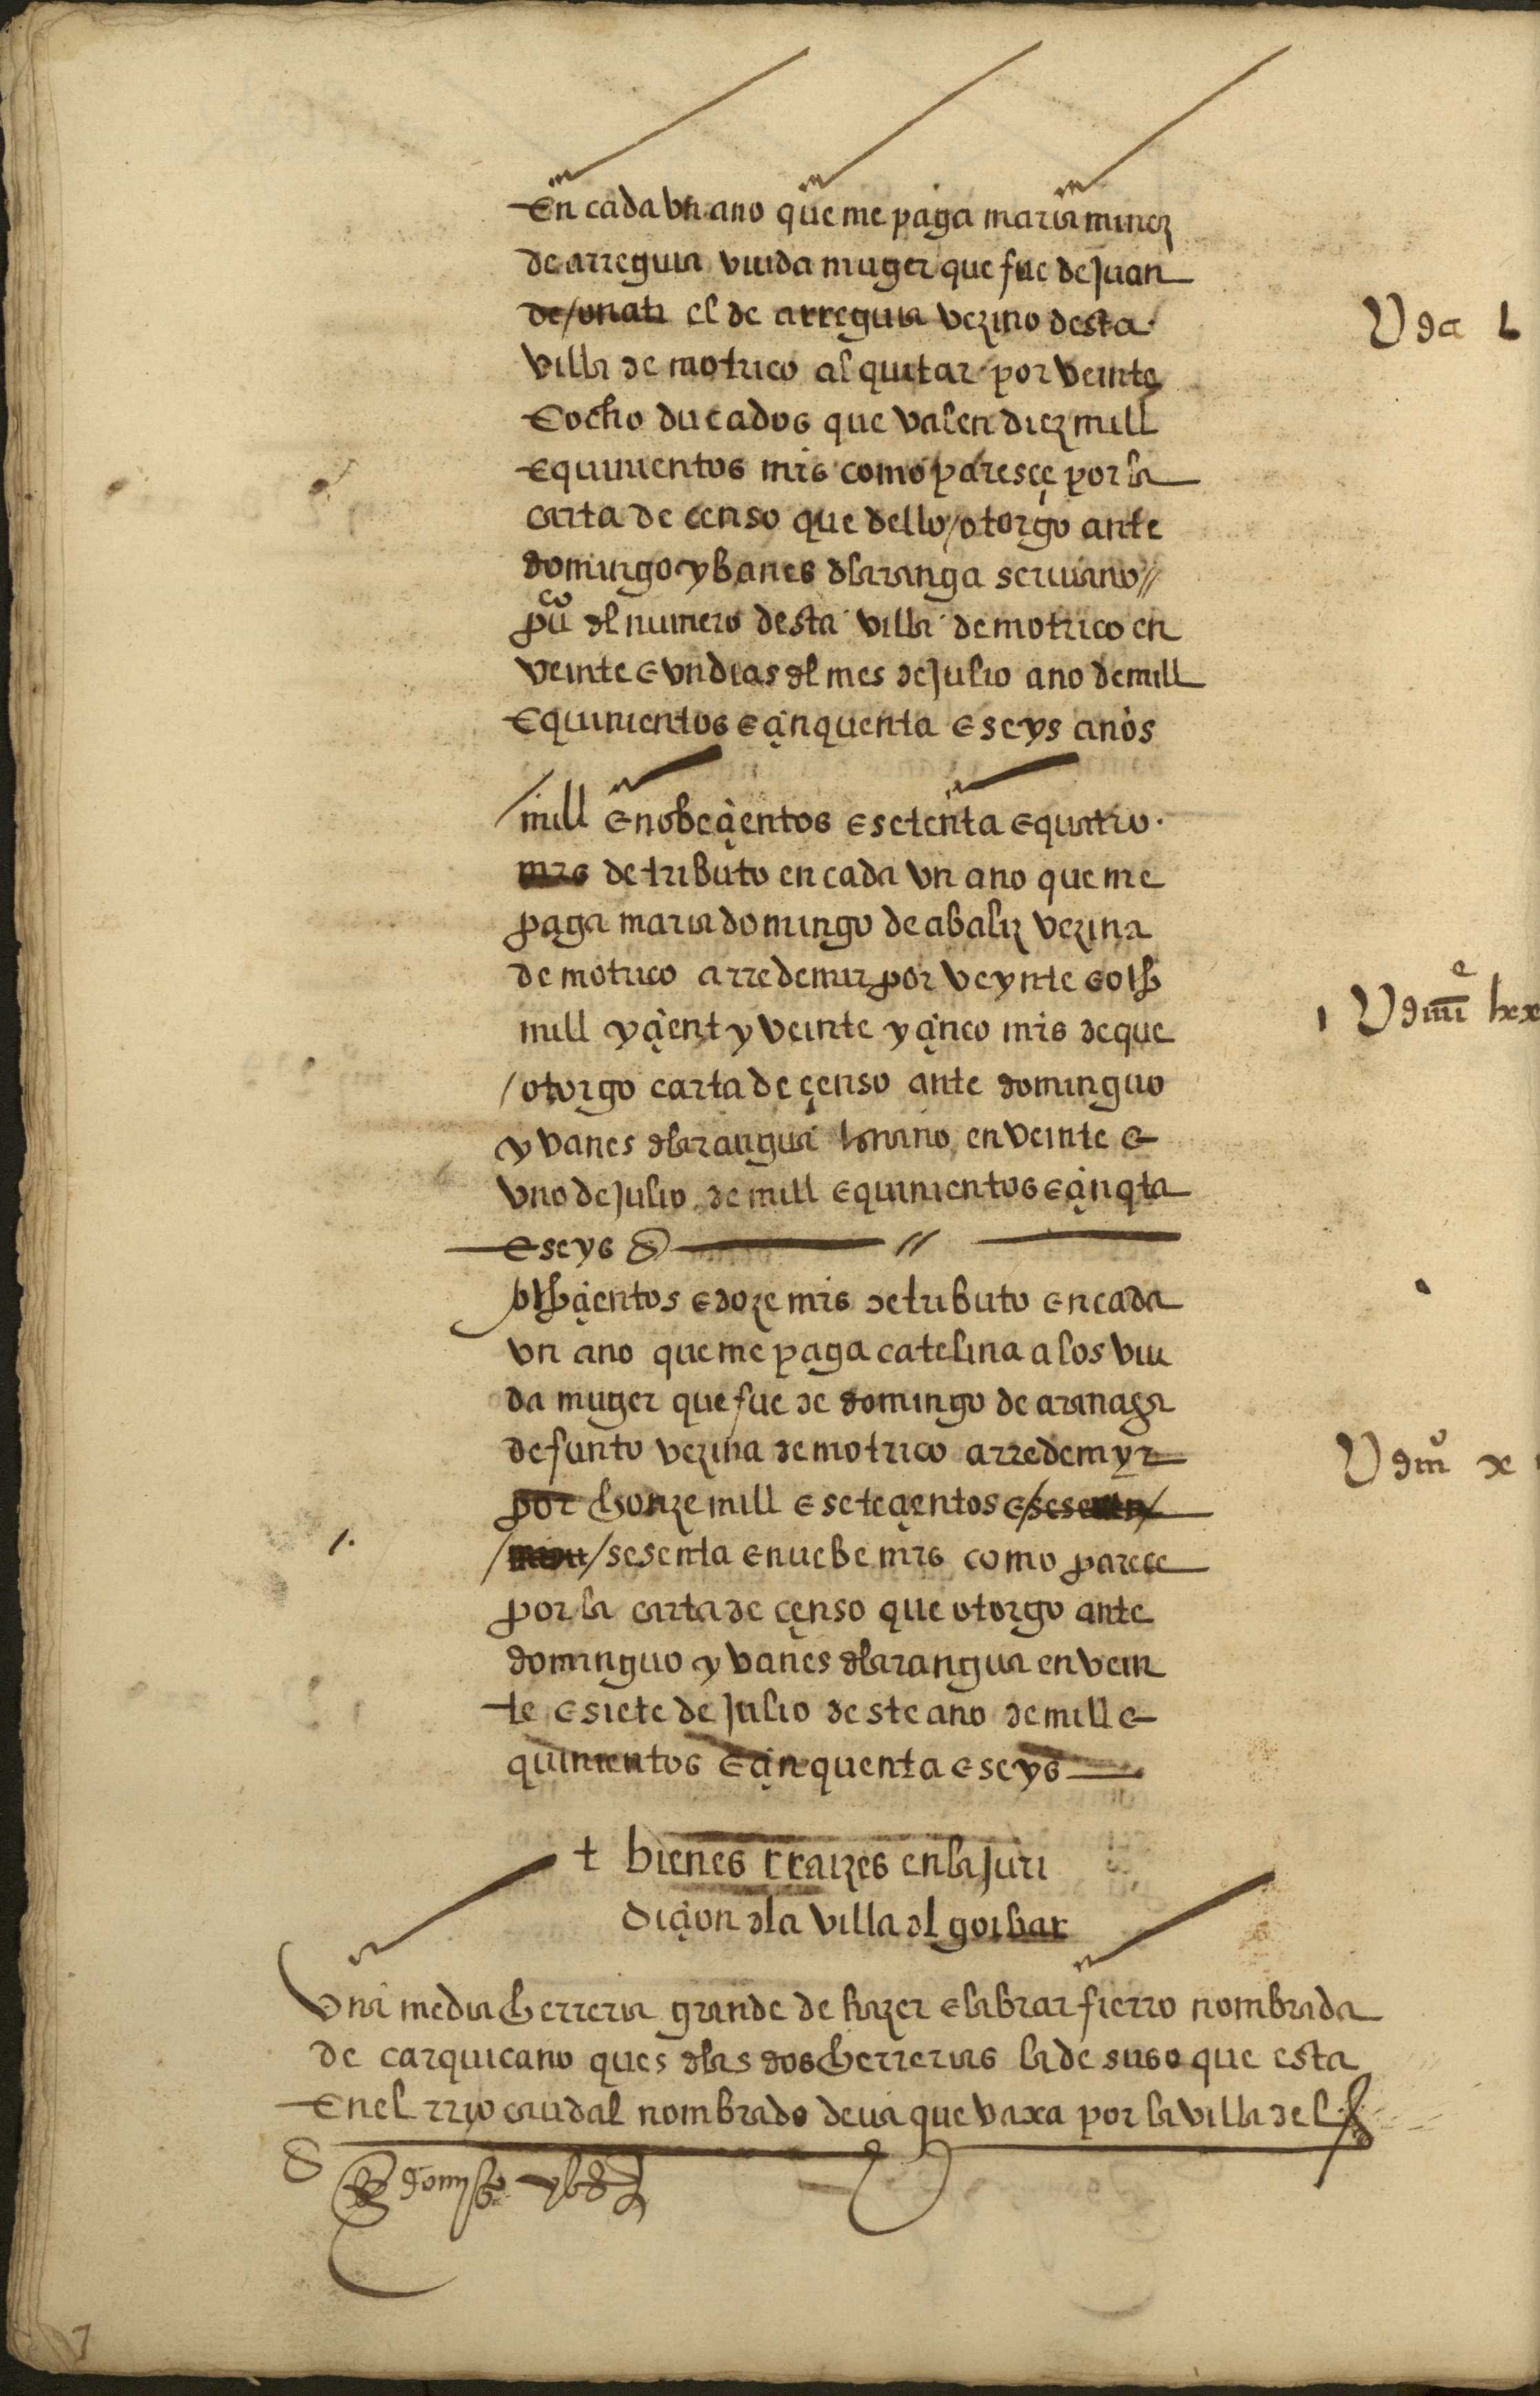 En cada vn ano que me paga maria minez
de arreguia viuda muger que fue de Juan
de /onati el de arreguia vezino desta
villa de motrico al quitar por veinte
E ocho ducados que valen diez mill
E quinientos mrs como paresçe por la
carta de censo que dello /otorgo ante
domingo ybanes dlaranga scrivano //
puco dl numero desta villa de motrico en
veinte E vn dias dl mes de Julio ano de mill
E quinientos E çinquenta E seys anos
/ mill E nobeçientos E setenta E quatro
mrs de tributo en cada vn ano que me
paga maria domingo de abaliz vezina
de motrico a rredemir por veynte E ocho
mill y çient y veinte y çinco mrs de que
/otorgo carta de çenso ante dominguo
yvanes dlarangua en veinte E
vno de Julio de mill E quinientos E çinqta
E seys
ochoçientos E doze mrs de tributo En cada
vn ano que me paga catelina alos viu
da muger que fue de domingo de aranaga
defunto vezina de motrico a rredemyr
por honze mill E seteçientos E /
/ / sesenta E nuebe mrs como parece
por la carta de çenso que otorgo ante
dominguo yvanes dlarangua en vein
te E siete de Julio deste ano de mill E
quinientos E çinquenta E seys
+ bienes rraizes en la Juri
diçion dla villa dl goibar
Vna media herreria grande de hazer E labrar fierro nombrada
de carquicano ques dlas dos herrerias la de suso que esta
En el rrio caudal nombrado deva que vaxa por la villa del